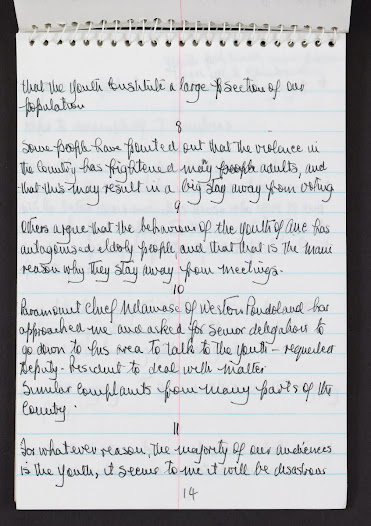 that the youth constitute a large section of our
population
8
Some people have pointed out that the violence in
the country has frightened many people adults, and
that this may result in a big stay away from voting
9
Others argue that the behaviour of the youth of ANC has
antagonised elderly people and that that is the main
reason why they stay away from meetings.
10
Paramount Chief Ndamase of Western Pondoland has
approached me and asked for senior delegation to
go down to his area to talk to the youth - requested
Deputy-President to deal with matter.
Similar complaints from many parts of the
country.
11
For whatever reason, the majority of our audiences
is the youth, it seems to me it will be disastrous
14